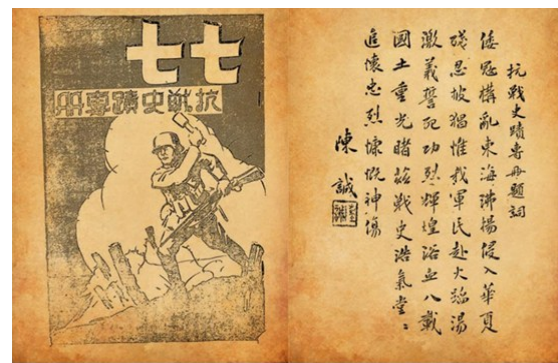 七七
抗战史蹟專册
抗戰史蹟專册題詞
倭寇構亂東海沸揚侵入華夏
殘忍披猖惟我軍民赴火蹈湯
激義誓死功烈輝煌浴血八載
國土重光睹茲戰史浩氣堂〻
追懷忠烈慷慨神傷
陳誠